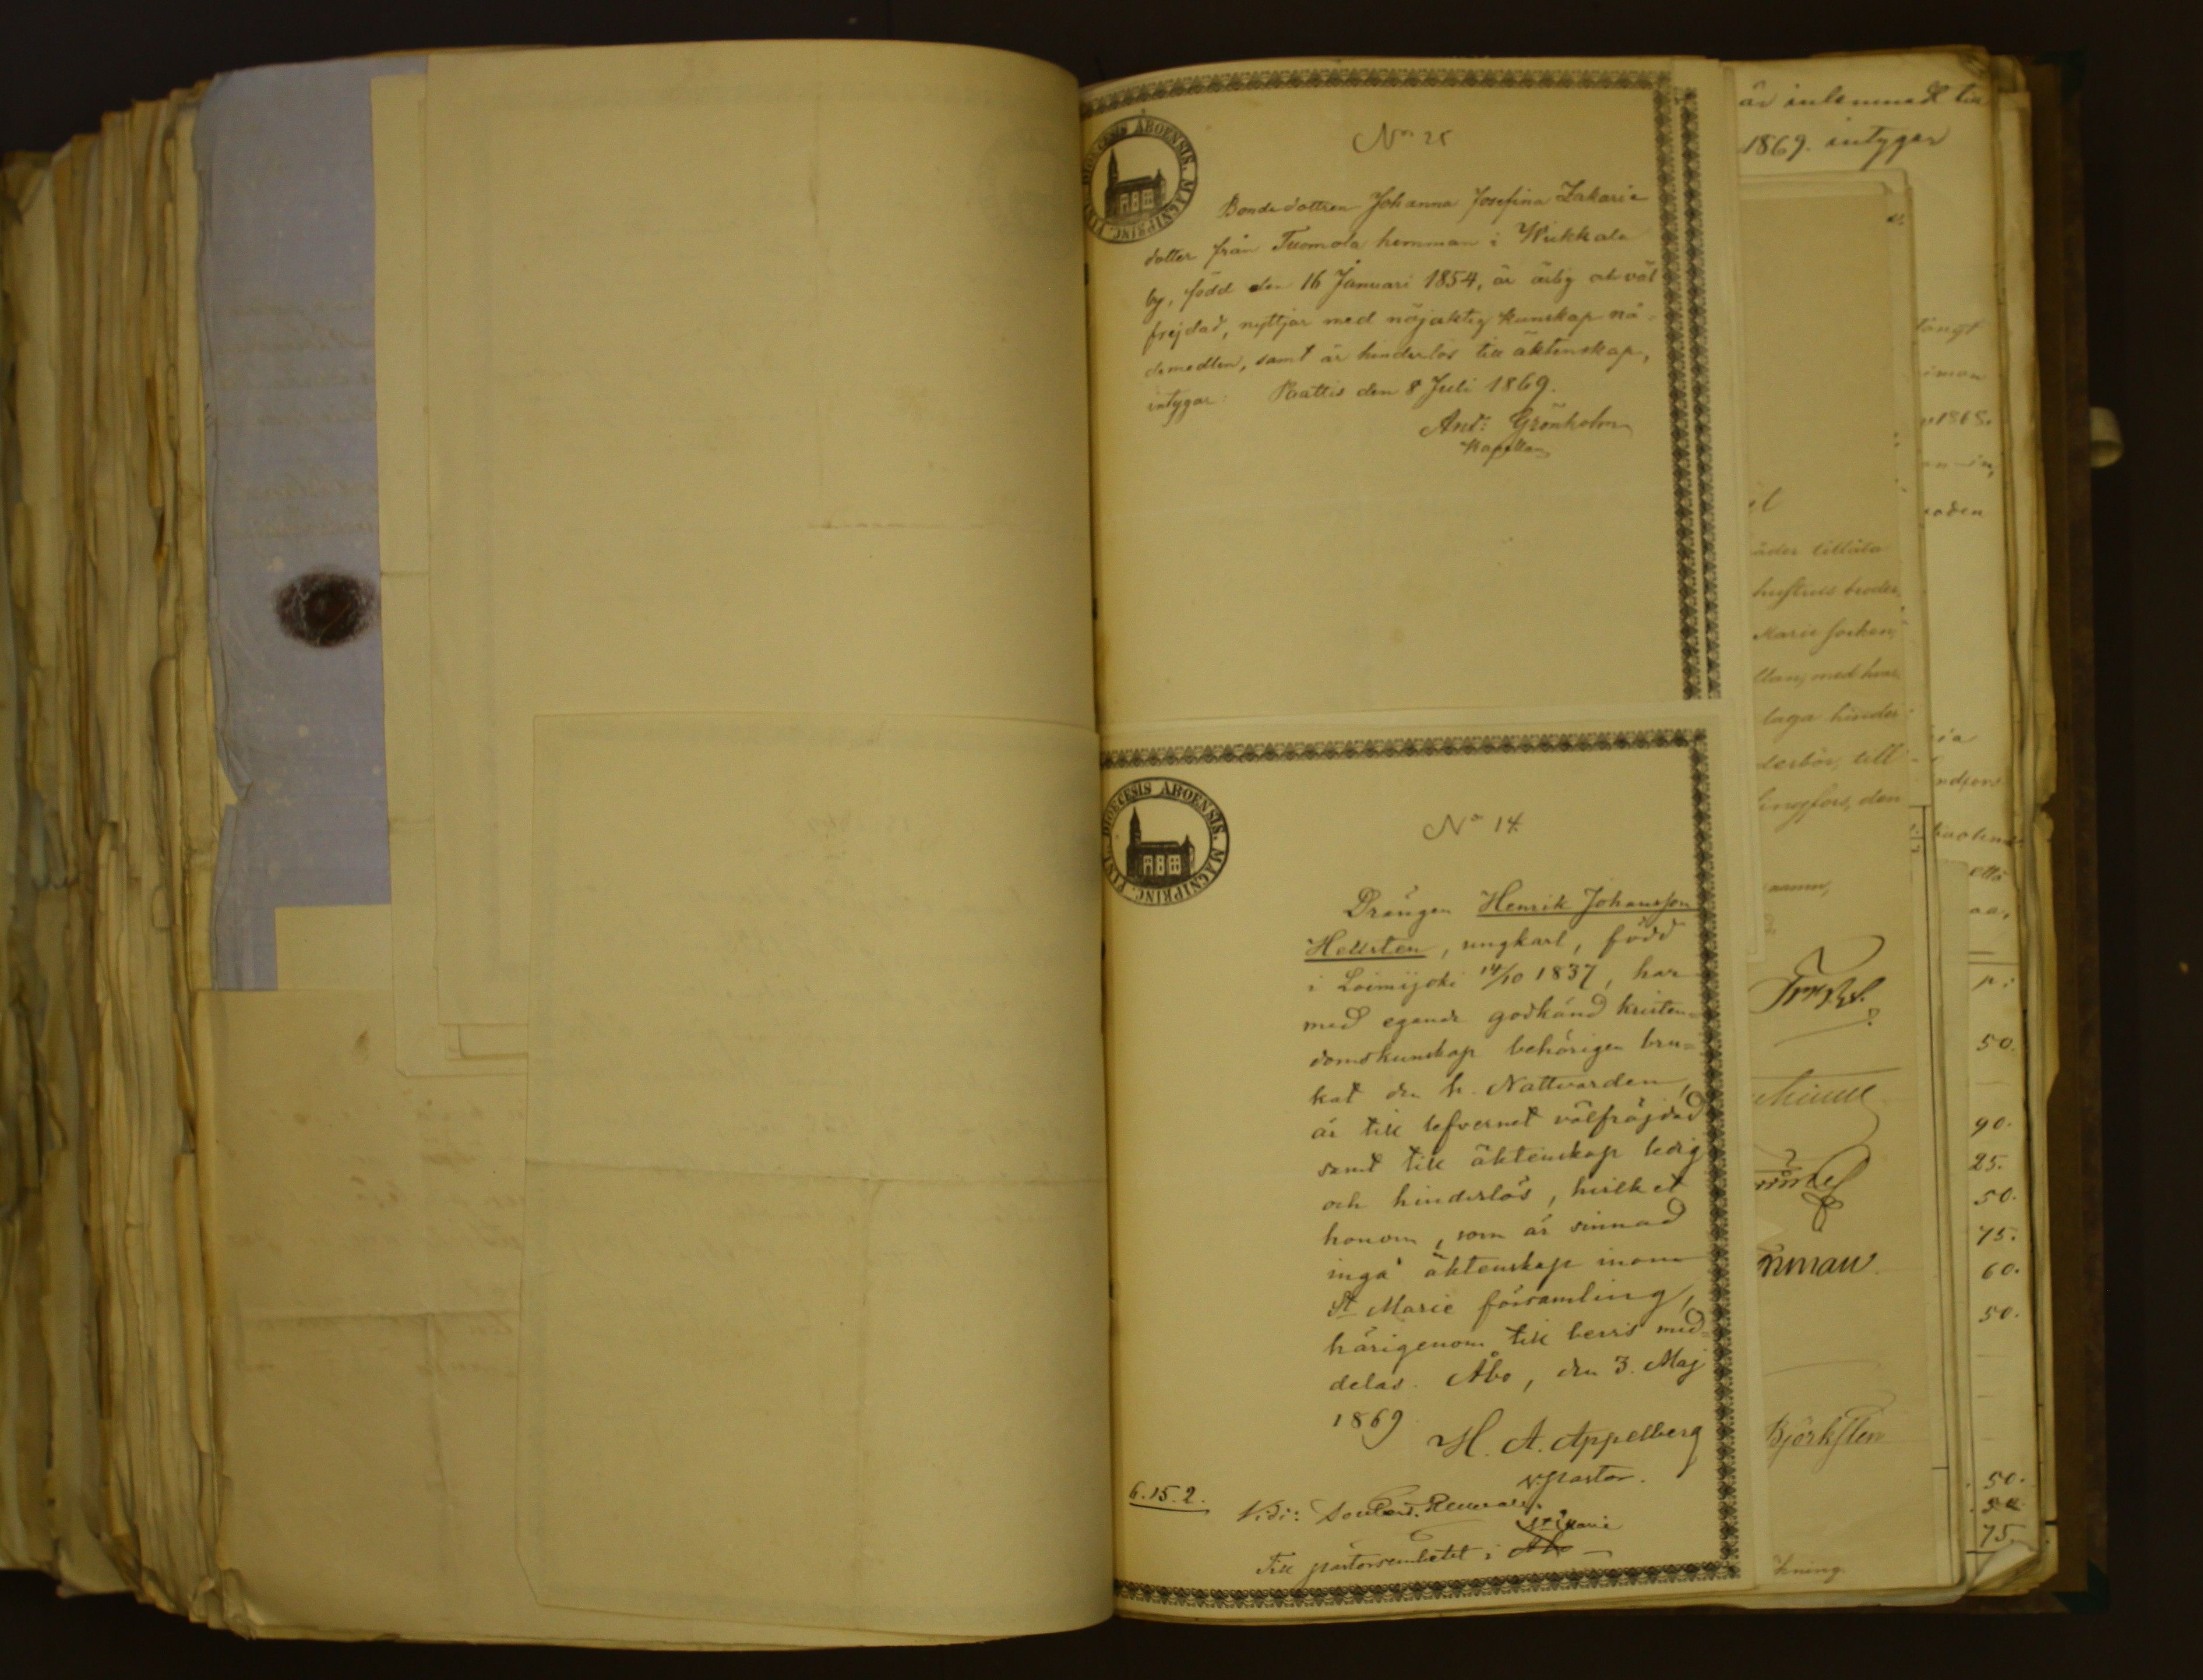 DIOECESIS ABOENSIS. MAGNI PRINC. FINL.
No 25
Bondedottren Johanna Josefina Zakarie
dotter från Tuomola hemman i Wiukkala
by, född den 16 Januari 1854, är ärlig och väl
frejdad, nyttjar med nöjaktig kunskap nå-
demedlen, samt är hinderlös till äktenskap,
intygar: Paattis den 8 Juli 1869.
And: Grönholm
Kapellan
DIOECESIS ABOENSIS. MAGNI PRINC. FINL.
No 14.
Drängen Henrik Johansson
Hellsten, ungkarl, född
i Loimijoki 14/10 1837, har
med egande godkänd kristen=
domskunskap behörigen bru=
kat den h. Nattvarden,
är till lefvernet välfräjdad
samt till äktenskap ledig
och hinderlös, hvilket
honom, som är sinnad
ingå äktenskap inom
St Marie församling,
härigenom till bevis med=
delas. Åbo, den 3. Maj
1869
H. A. Appelberg
v. pastor.
6.15.2.
Vidi:
St Marie
Till pastorsembetet i Åbo
är inlemnadt till
1869. intygar
åder tillåta
hustrus broder,
Marie socken,
med hvar
laga hinder
till
den
50.
90.
25.
50.
75.
60.
50.
Björksten
50.
50
75.